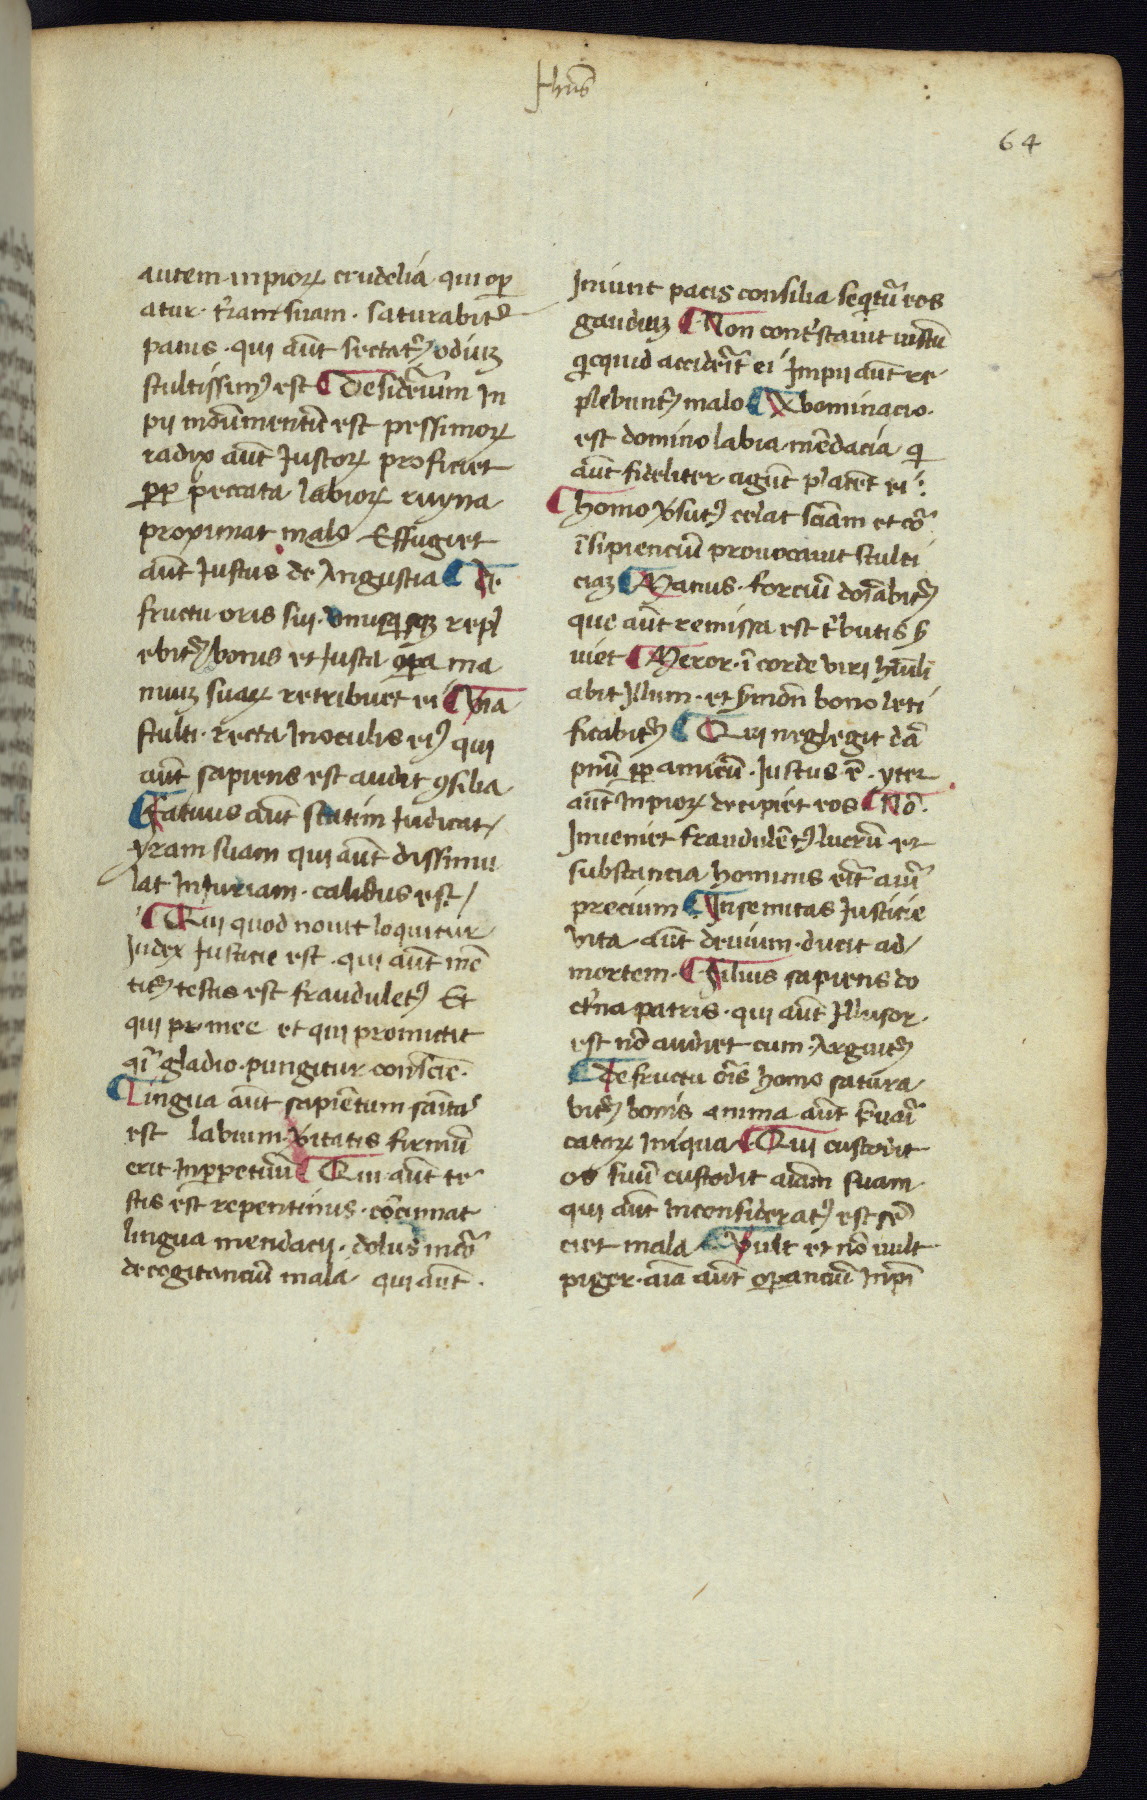 Jhus
64
autem inpioꝝ crudelia qui oper
atur · t'ram suam · saturabit᷑
panis · qui aūt sectat᷑ odiuꝫ
stultissimꝰ est ¶ Desid'ium in
pij mōimentū est pessimoꝝ
radix aūt Justoꝝ proficiet
ꝓpꝑ peccata labioꝝ ruyna
proximat malo Effugiet
aūt Justus de Angustia ¶ De
fructu oris sui · vnusqisqꝫ repl
ebit᷑ bonis et Justa oꝑa ma
nuuꝫ suaꝝ retribuet ei ¶ Via
stulti · recta Inoculis eiꝰ qui
aūt sapiens est audit ꝯsilia
¶ Fatuus aūt statim Judicat
yram suam qui aūt dissimu
lat Iniuriam · calidus est /
¶ Qui quod nouit loquitur
Judex Justicie est · qui aūt mē
tit᷑ testis est frauduletꝰ Et
qui pr mee et qui promittit
qi gladio · pungitur consciē ·
¶ Lingua aūt sapiētum sāitas
est labium v'itatis firmū
erit inꝑpetuū ¶ Qui aūt te
stis est repentinus · cōcinnat
lingua mendacij · dolus in cor
de cogitanciū mala qui aūt ·
Iniunt pacis consilia seqt᷑ eos
gaudiuꝫ ¶ Non cont'stauit iustū
qicquid accid'it ei Impij aūt re
plebunt᷑ malo ¶ Abominacio ·
est domino labia mēdacia qi
aūt fideliter agūt placēt ei :
¶ homo v'sutꝰ celat sciam et cor
īsipienciū prouocauit stulti
ciaꝫ ¶ Manus · forciū doīabit᷑
que aūt remissa est t'butis s'
uiet ¶ Meror · ī corde viri hūili
abit Illum · et s'mōn bono leti
ficabit᷑ ¶ Qui neglegit dā
pnū ꝓpꝑ amicū · Justus ē · yter
aūt inpioꝝ decipiet eos ¶ Nō
Inueniet fraudulētꝰ lucrū et
substancia hominis erit auri
precium ¶ In semitas Justicie
vita · aūt deuium · ducit ad /
mortem · ¶ Filius sapiens do
ct'na patris · qui aūt Illusor ·
est nō audiet cum · Arguit᷑
¶ De fructu oris homo satura
bit᷑ bonis anima aūt p'uari
catoꝝ iniqua ¶ Qui custodit
os suū custodit aīam suam
qui aūt Inconsideratꝰ est sē
ciet mala ¶ Vult et nō uult
piger · aīa aūt oꝑanciū Inpī